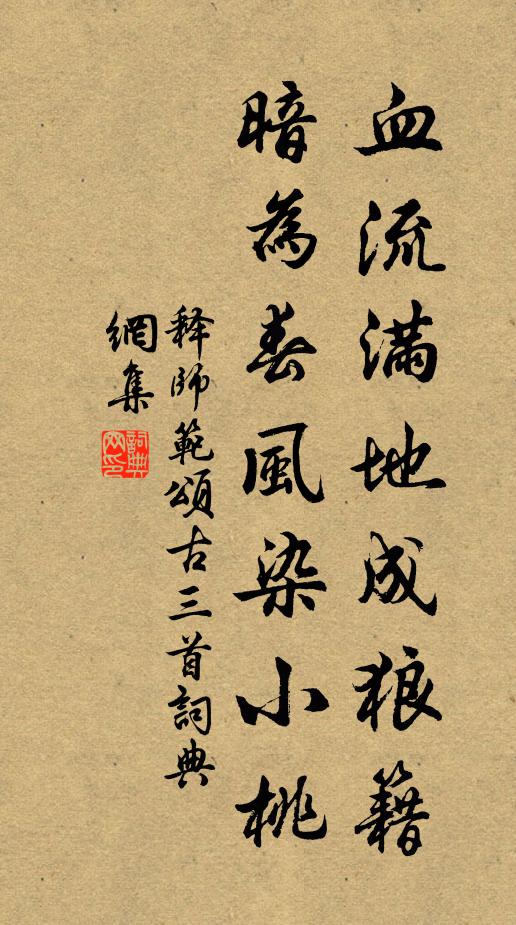 血流滿地成狼籍
暗為春風染小桃
释師範頌古三首詞典
網集
詞典
网印